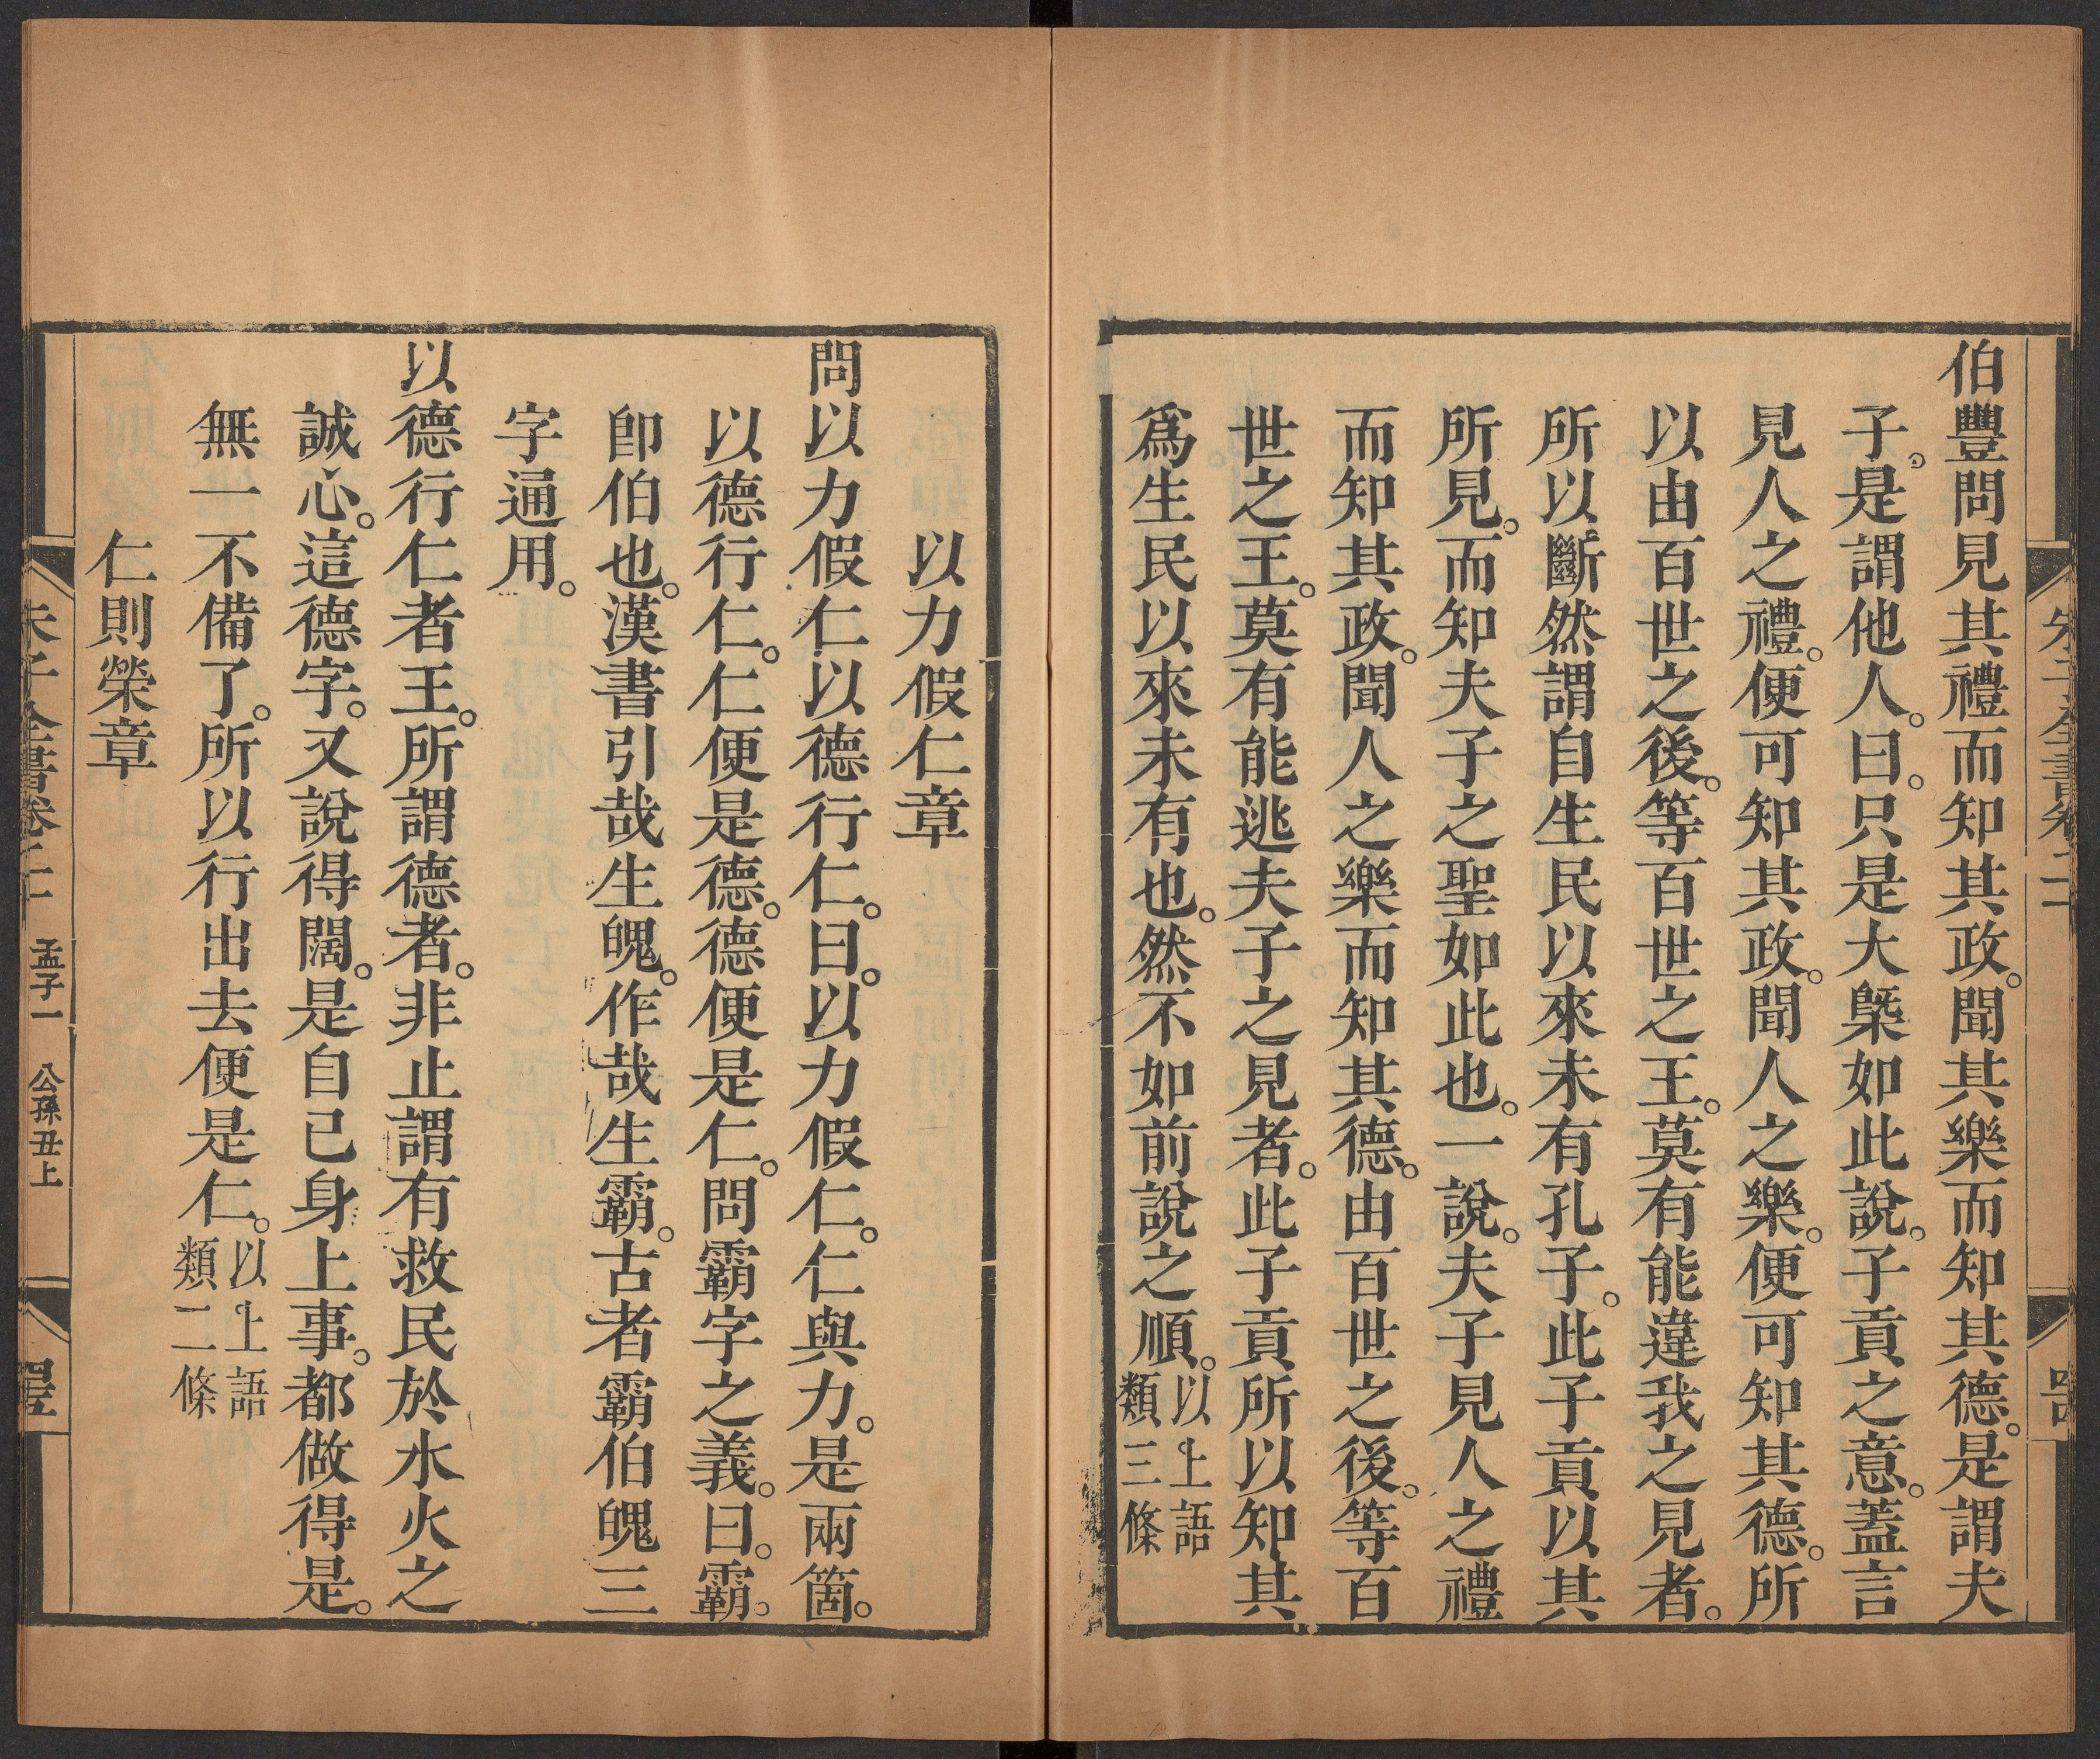 伯豐問見其禮而知其政。聞其樂而知其德。是謂夫
子。是謂他人。曰。只是大槩如此說。子貢之意。蓋言
見人之禮。便可知其政。聞人之樂。便可知其德。所
以由百世之後。等百世之王。莫有能違我之見者。
所以斷然謂自生民以來未有孔子。此子貢以其
所見。而知夫子之聖如此也。一說。夫子見人之禮
而知其政。聞人之樂而知其德。由百世之後。等百
世之王。莫有能逃夫子之見者。此子貢所以知其
爲生民以來未有也。然不如前說之順。以上語
類三條
以力假仁章
問以力假仁以德行仁。曰。以力假仁。仁與力。是兩箇。
以德行仁。仁便是德。德便是仁。問霸字之義。曰。霸。
卽伯也。漢書引哉生魄。作哉生霸。古者霸伯魄三
字通用。
以德行仁者王。所謂德者。非止謂有救民於水火之
誠心。這德字。又說得闊。是自己身上事。都做得是。
無一不備了。所以行出去便是仁。以上語
類二條
仁則榮章
朱子全書卷二十 孟子一 公孫丑上